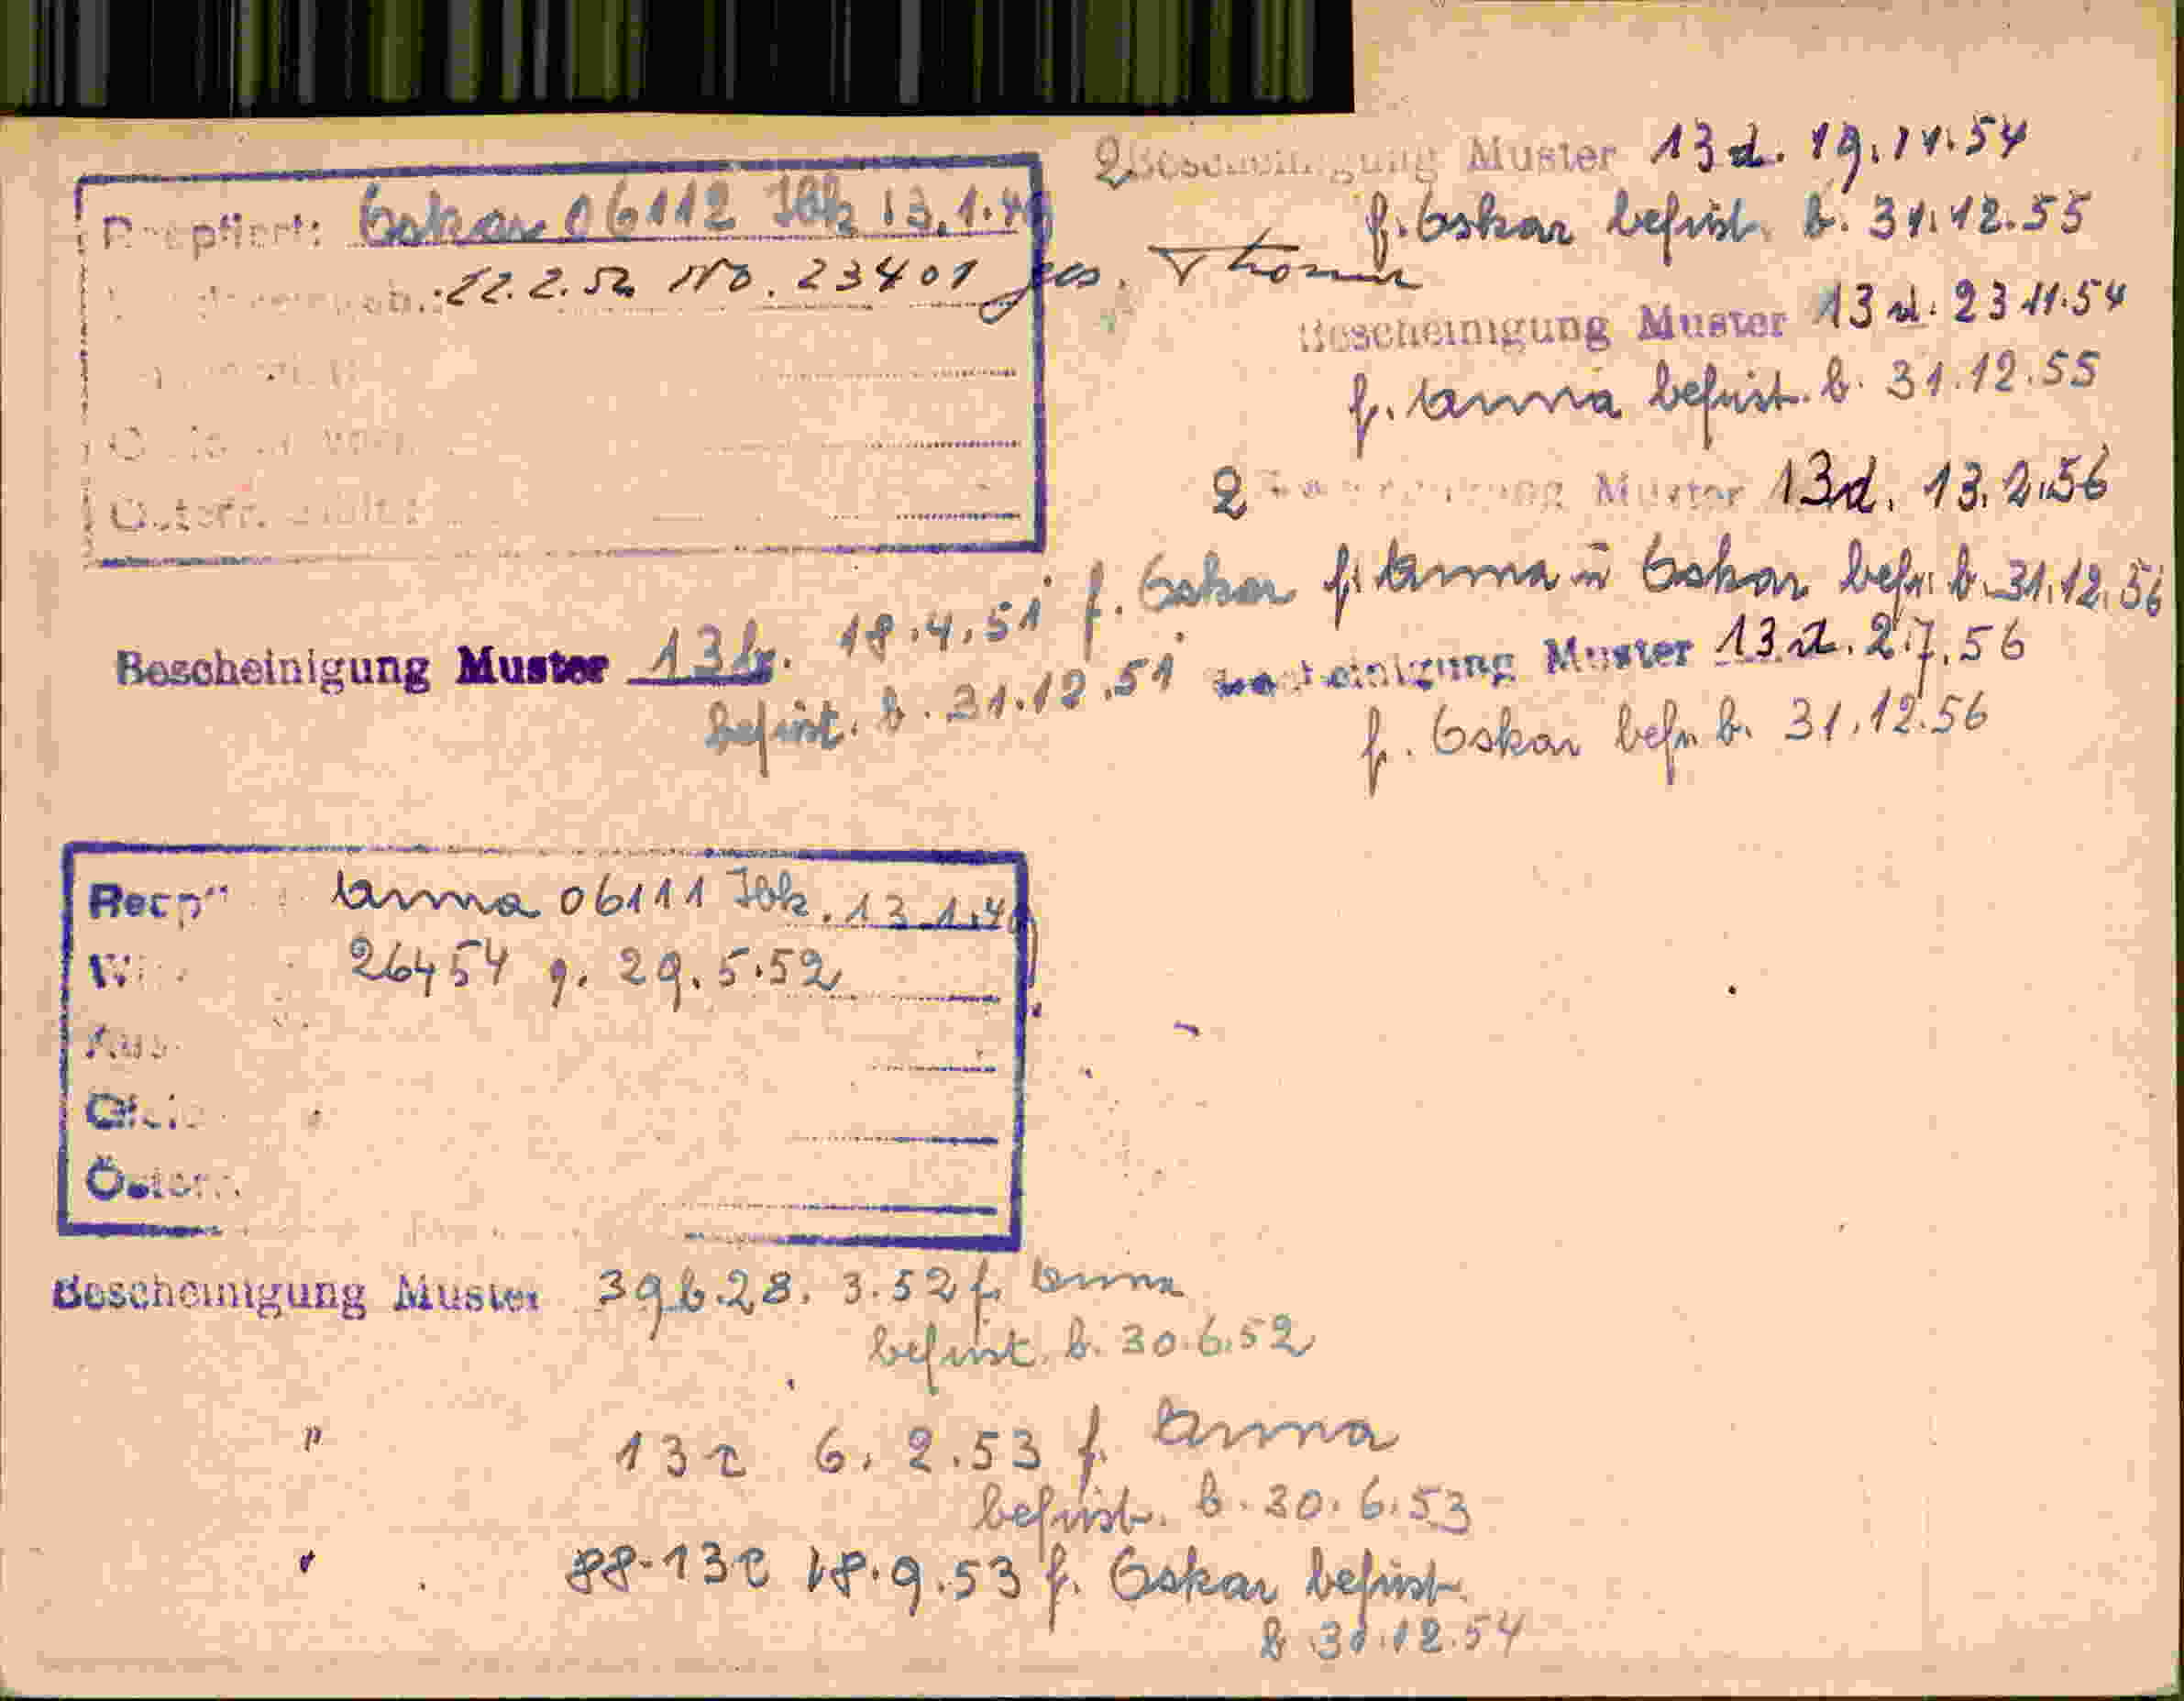 Oskar 06112 Ibk 13.1.4
22.2.52 No. 23401 ges.
Bescheinigung Muster 13b. 18.4.51 f. Oskar
befrist. b. 31.12.51
2 Bescheinigung Muster 13d. 19.11.54
f. Oskar befrist. b. 31.12.55
Bescheinigung Muster 13d. 23 11.54
f. Anna befrist. b. 31.12.55
2 Muster 13d. 13.2.56
f. Anna u Oskar befr. b. 31.12.56
Bescheinigung Muster 13d. 2.7.56
f. Oskar befr. b. 31.12.56
Anna 06111 Ibk. 13.1.4
26454 g. 29.5.52
Österr.
Bescheinigung Muster 39b. 28. 3.52 f. Anna
befrist. b. 30.6.52
" 13c 6. 2.53 f. Anna
befrist. b. 30.6.53
" 88-13c 18.9.53 f. Oskar befrist.
b. 31.12.54